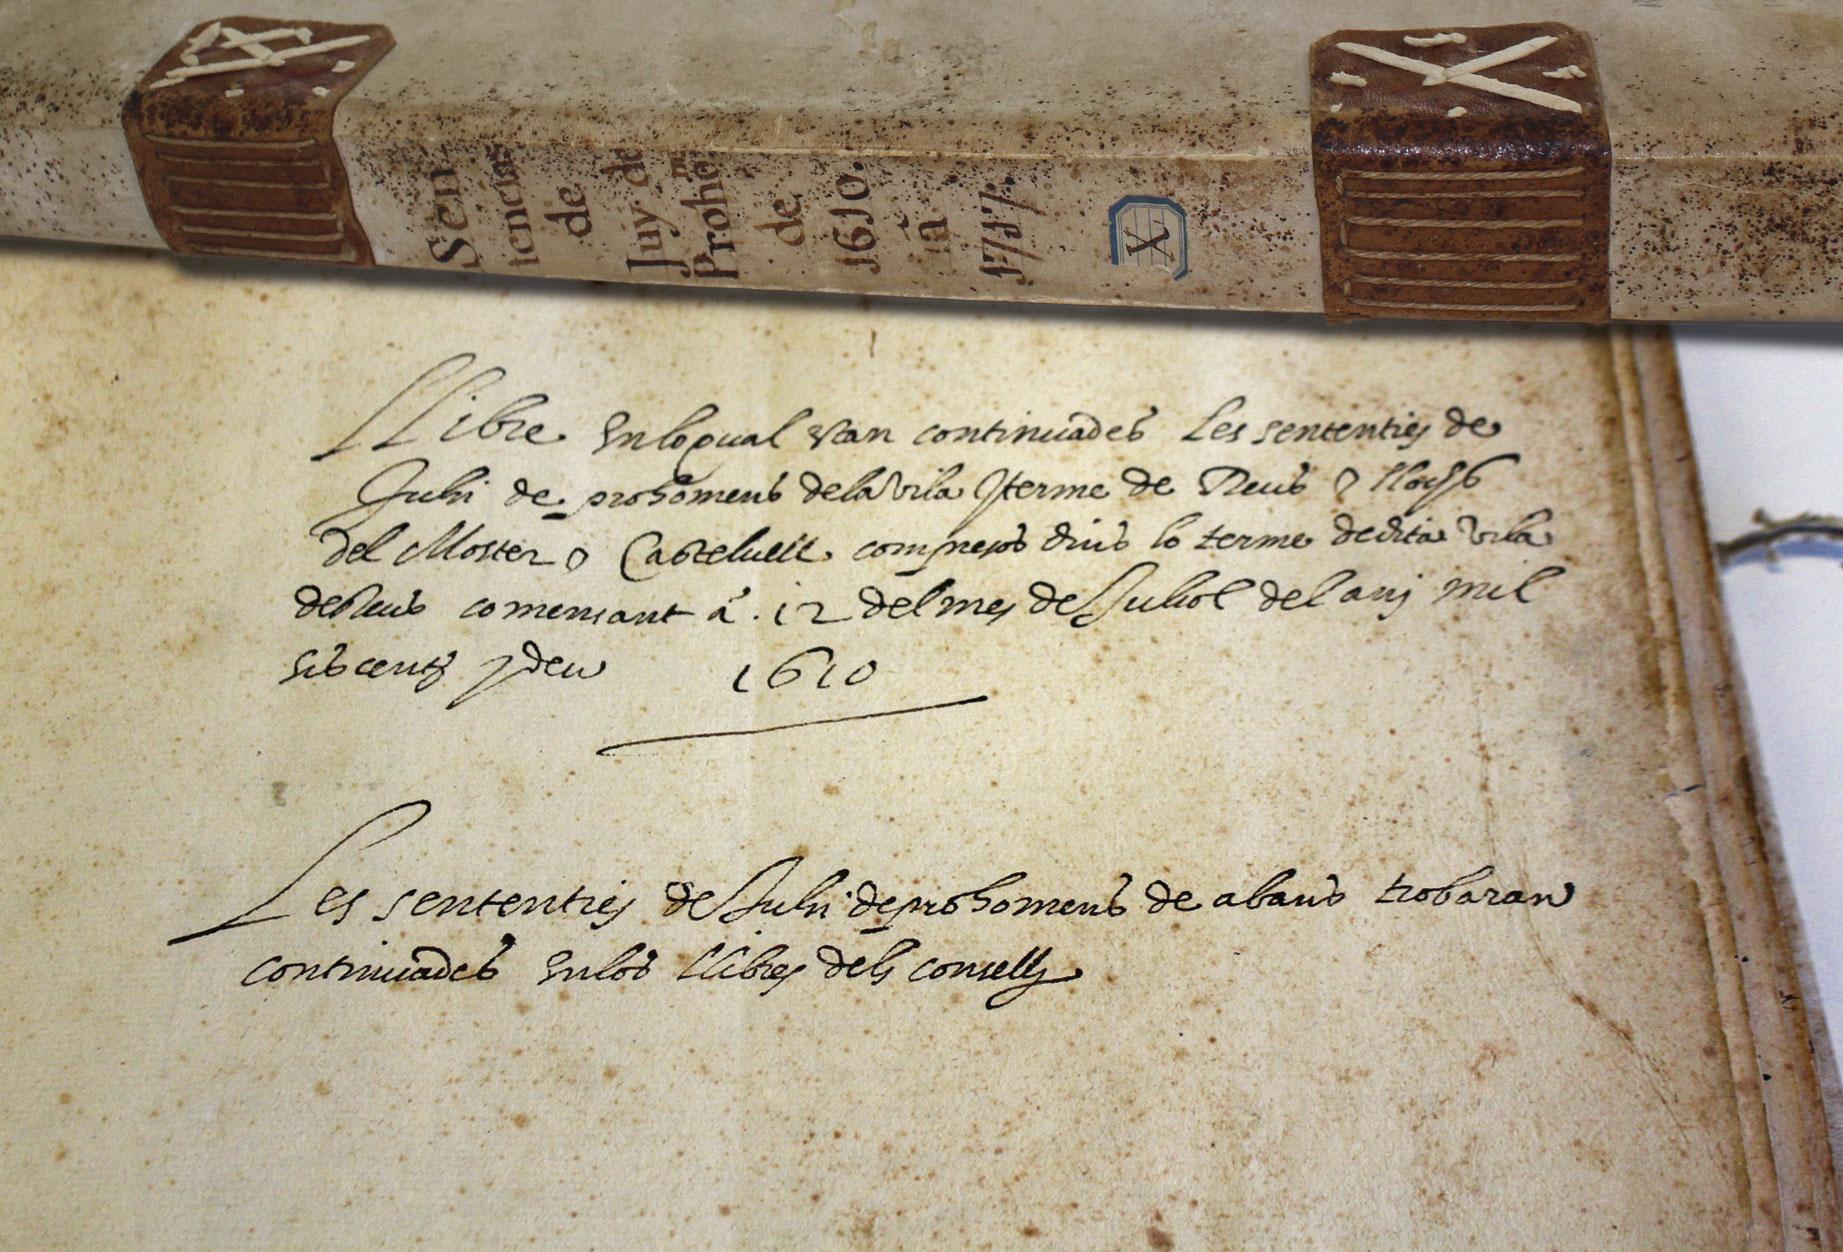 Sen
tencias
de
Juy. de
Prohe.ⁿˢ
de
1610.
ia
1717.
X
LLibre en lo qual stan continuades Les sententies de
Juhi de prohomens de la vila y terme de Reus y llochs
del Moster y Castelvell compresos dins lo terme de dita vila
de Reus comensant a .12 del mes de Juliol del any mil
sis cents y deu 1610
Les sententies de Juhi de prohomens de abans trobaran
continuades en los llibres dels consells